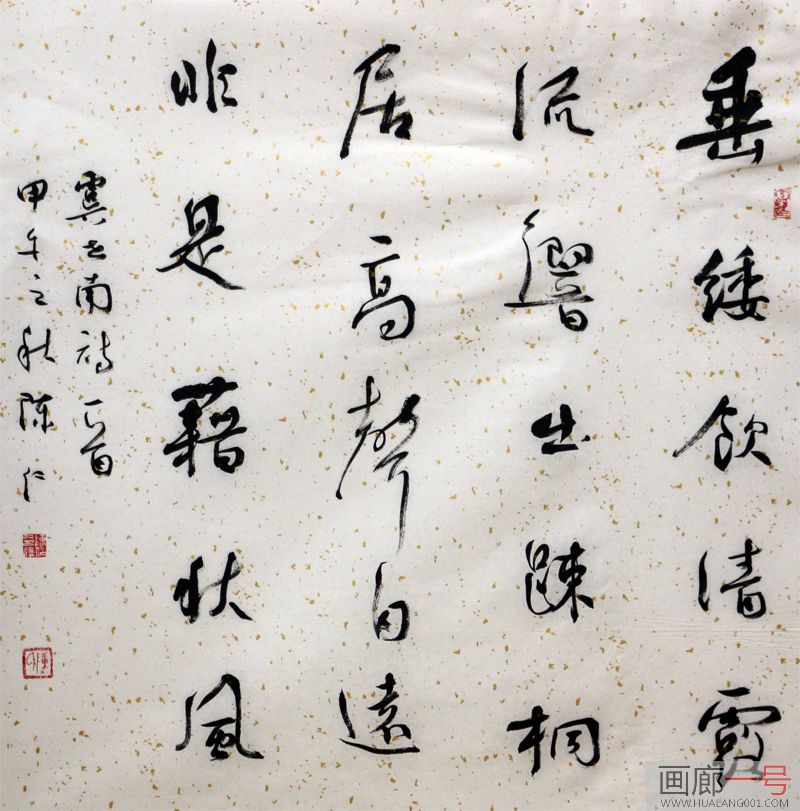 垂緌飲清露
流響出疎桐
居高聲自遠
非是藉秋風
虞世南詩一首
甲午之秋陳仁
画廊一号
WWW.HUALANG001.COM